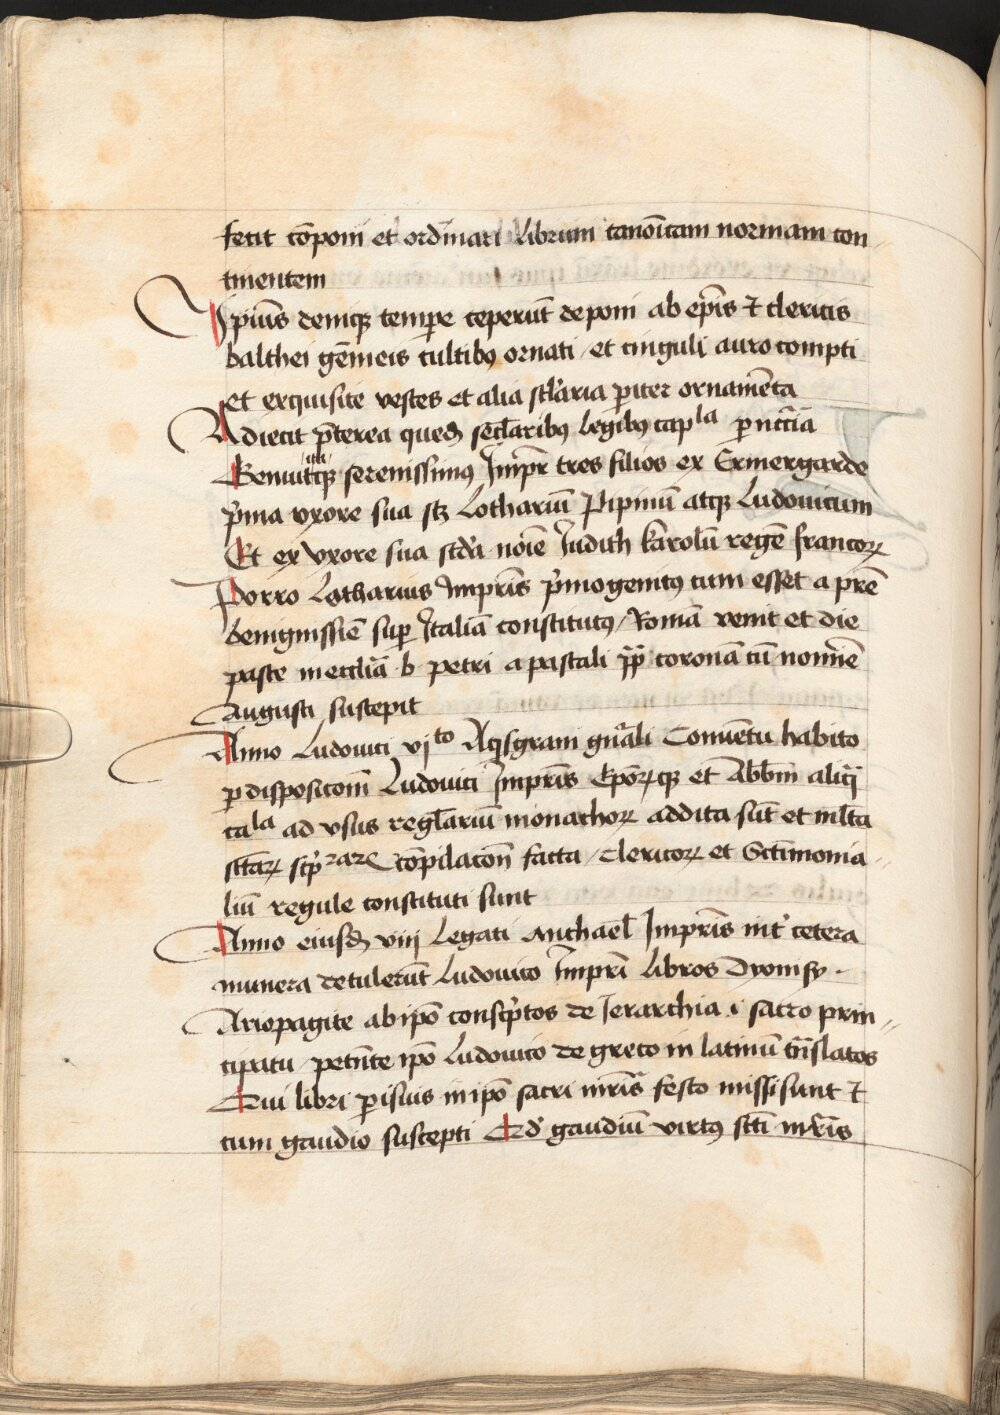 fecit cōponi et ordīnari librum canoīcam normam con
tinentem
Ipiūs deniqꝫ tempe ceperūt deponi ab ep̄is ⁊ clericis
balthei gēmeis cultibꝰ ornati / et cinguli auro compti
et exquisite vestes et alia sclaria piter ornamēta
Adiecit p̄terea quedꝫ seclaribꝰ legibꝰ capˡᵃ
Genuitqꝫ serenissimꝰ Imp̄r tres filios ex Ermergarde
p̄ma vxore sua scꝫ Lothariū Pipinū atqꝫ Ludouicum
Et ex vxore sua scd̄a noīe Judith karolū regē francoꝝ
Porro Lotharius Imp̄ris p̄mogenitꝰ cum esset a pr̄e
benignissīe suꝑ Italiā constitutꝰ / Romā venit et die
pasce in ecclīa b petri a pascali pp̄ coronā cū nomīe
augusti suscepit
Anno Ludouici vjᵗᵒ Aqisgrani gn̄ali Conuētu habito
ꝑ dispositom̄ Ludouici Imp̄ris Ep̄oꝝqꝫ et Abb̄m aliq̄
caˡᵃ ad vsus reglariū monachoꝝ addita sūt et mlta
sctaꝝ scp̄ʳaꝝ Cōpilacon̄ facta / clericoꝝ et Sctimonia
liū regule constituti sunt
Anno eiusdꝫ viij Legati Michael Imp̄ris int̄ cetera
munera detulerūt Ludouico Imp̄ri libros Dyonisy
Ariopagite ab ip̄o consc̄ptos de Ierarchia .i. sacro prin
cipatu / petēte ip̄o Ludouico de greco in latinū tn̄slatos
Qui libri parisius in ip̄o sacri mr̄is festo missi sunt ⁊
cum gaudio suscepti Qd̄ gaudiū virtꝰ scti mr̄is